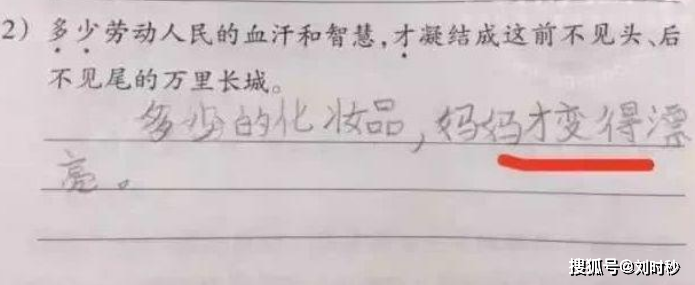 2）多少劳动人民的血汗和智慧,才凝结成这前不见头、后
不见尾的万里长城。
多少的化妆品，妈妈才变得漂
亮。
搜狐号@刘时秒